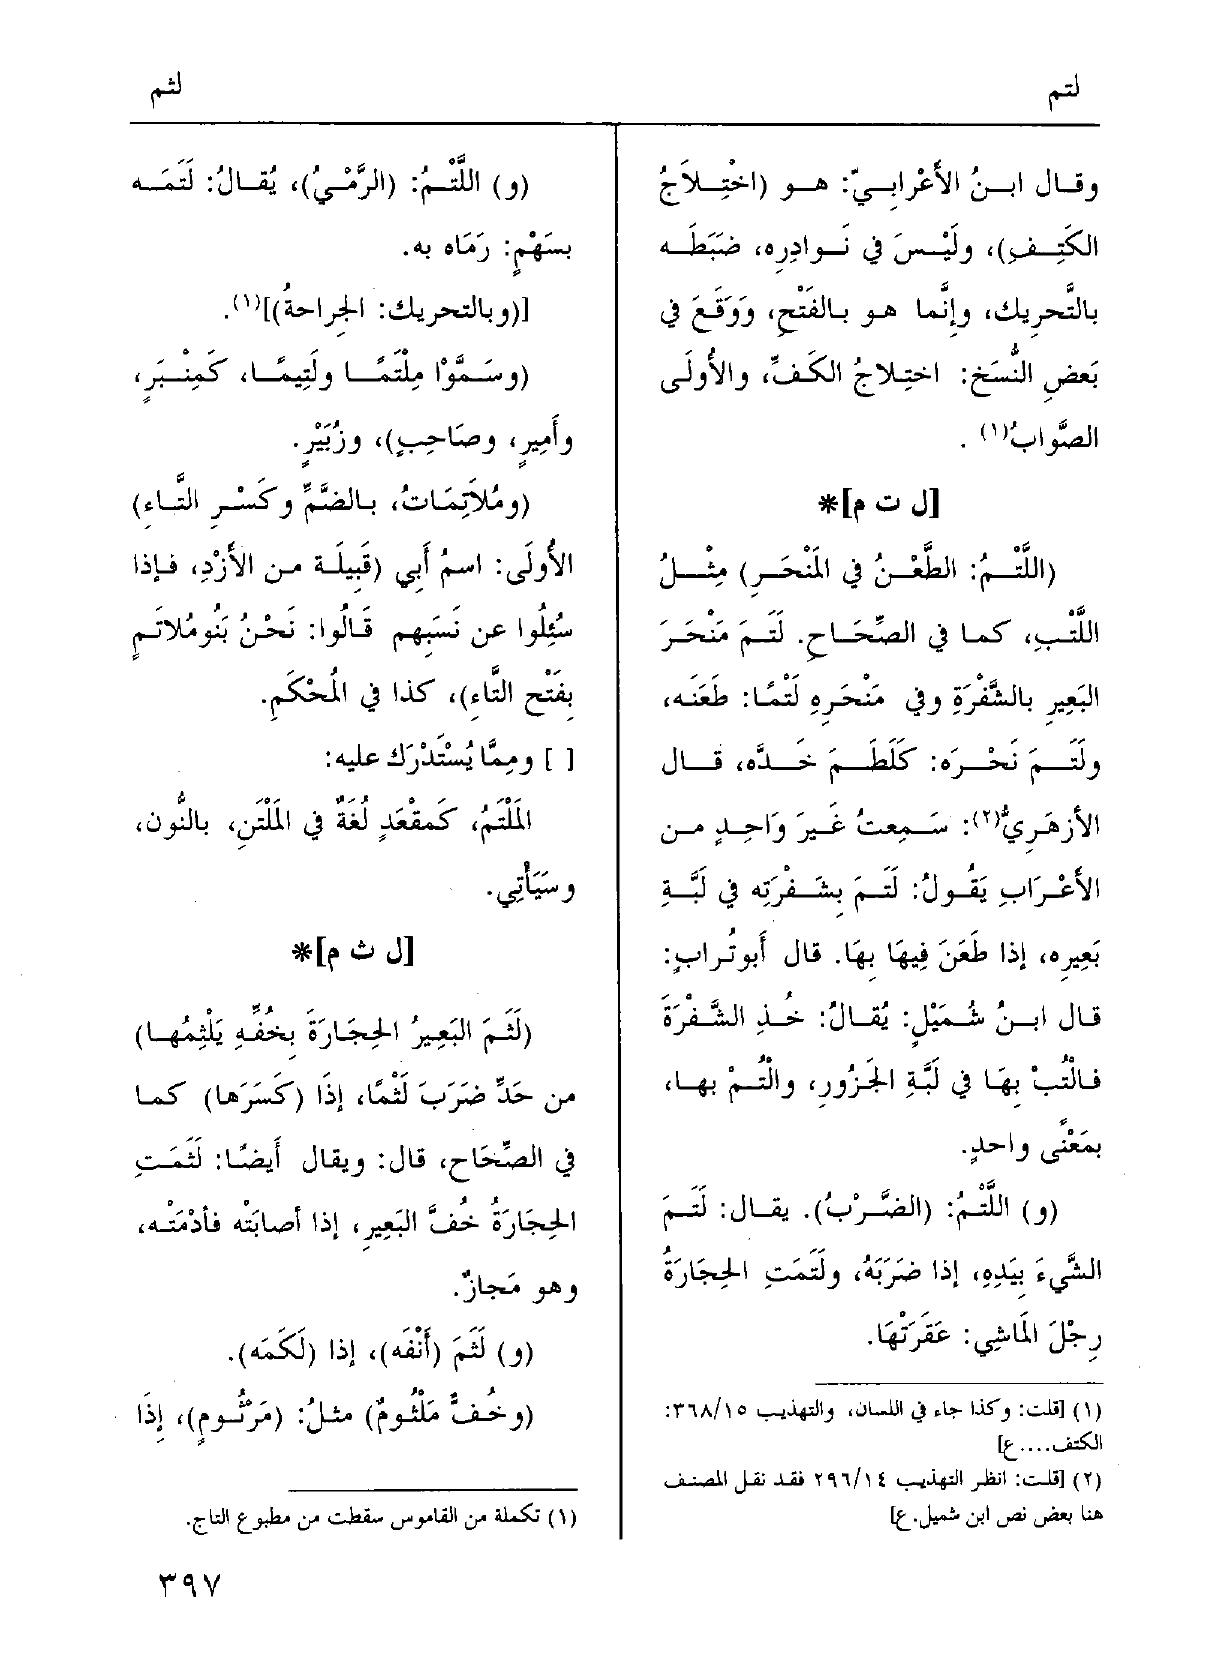 لتم
لثم
وقال ابنُ الأَعْرابِيّ: هو (اخْتِلاَجُ
الكَتِفِ)، ولَيْسَ في نَوادِرِه، ضَبَطَه
بالتَّحرِيك، وإِنَّما هو بالفَتْحِ، وَوَقَعَ في
بَعضِ النُّسَخِ: اختِلاجُ الكَفِّ، والأُولَى
الصَّوابُ(١) .
[ل ت م]*
(اللَّتْمُ: الطَّعْنُ في المَنْحَرِ) مِثْلُ
اللَّتْبِ، كما في الصِّحَاحِ. لَتَمَ مَنْحَرَ
البَعِيرِ بالشَّفْرَةِ وفي مَنْحَرِهِ لَتْمًا: طَعَنَه،
ولَتَمَ نَحْرَه: كَلَطَمَ خَدَّه، قال
الأزهَرِيُّ(٢): سَمِعتُ غَيرَ وَاحِدٍ من
الأَعْرَابِ يَقُولُ: لَتَمَ بِشَفْرَتِه في لَبَّةِ
بَعِيرِه، إذا طَعَنَ فِيهَا بِهَا. قال أبوتُرابٍ:
قال ابنُ شُمَيْلٍ: يُقالُ: خُذِ الشَّفْرَةَ
فالْتُبْ بِهَا في لَبَّةِ الجَزُورِ، والْتُمْ بها،
بمَعْنًى واحدٍ.
(و) اللَّتْمُ: (الضَّرْبُ). يقال: لَتَمَ
الشَّيءَ بِيَدِهِ، إذا ضَرَبَهُ، ولَتَمَتِ الحِجَارَةُ
رِجْلَ المَاشِي: عَقَرَتْهَا.
(١) [قلت: وكذا جاء في اللسان، والتهذيب ٣٦٨/١٥:
الكتف....ع]
(٢) [قلت: انظر التهذيب ٢٩٦/١٤ فقد نقل المصنف
هنا بعض نص ابن شميل.ع]
(و) اللَّتْمُ: (الرَّمْيُ)، يُقالُ: لَتَمَه
بسَهْمٍ: رَمَاه به.
[(وبالتحريك: الجراحةُ)](١).
(وسَمَّوْا مِلْتَمًا ولَتِيمًا، كَمِنْبَرٍ،
وأَمِيرٍ، وصَاحِبٍ)، وزُبَيْرٍ.
(ومُلاَتِمَاتُ، بالضَّمِّ وكَسْرِ التَّاءِ)
الأُولَى: اسمُ أَبِي (قَبِيلَة من الأَزْدِ، فإذا
سُئِلُوا عن نَسَبِهِم قَالُوا: نَحْنُ بَنُومُلاتَمٍ
بِفَتْحِ التَّاءِ)، كذا في المُحْكَمِ.
[ ] ومِمَّا يُسْتَدْرَك عليه:
المَلْتَمُ، كَمقْعَدٍ لُغَةٌ في المَلْتَنِ، بالنُّون،
وسَيَأْتِي.
[ل ث م]*
(لَثَمَ البَعِيرُ الحِجَارَةَ بِخُفِّهِ يَلْثِمُها)
من حَدِّ ضَرَبَ لَثْمًا، إِذَا (كَسَرَها) كما
في الصِّحَاحِ، قال: ويقال أَيضًا: لَثَمَتِ
الحِجَارَةُ خُفَّ البَعِيرِ، إذا أصابَتْه فأَدْمَتْه،
وهو مَجازٌ.
(و) لَثَمَ (أَنْفَه)، إذا (لَكَمَه).
(وخُفٌّ مَلْثُومٌ) مثلُ: (مَرْثُومٍ)، إِذَا
(١) تكملة من القاموس سقطت من مطبوع التاج.
٣٩٧